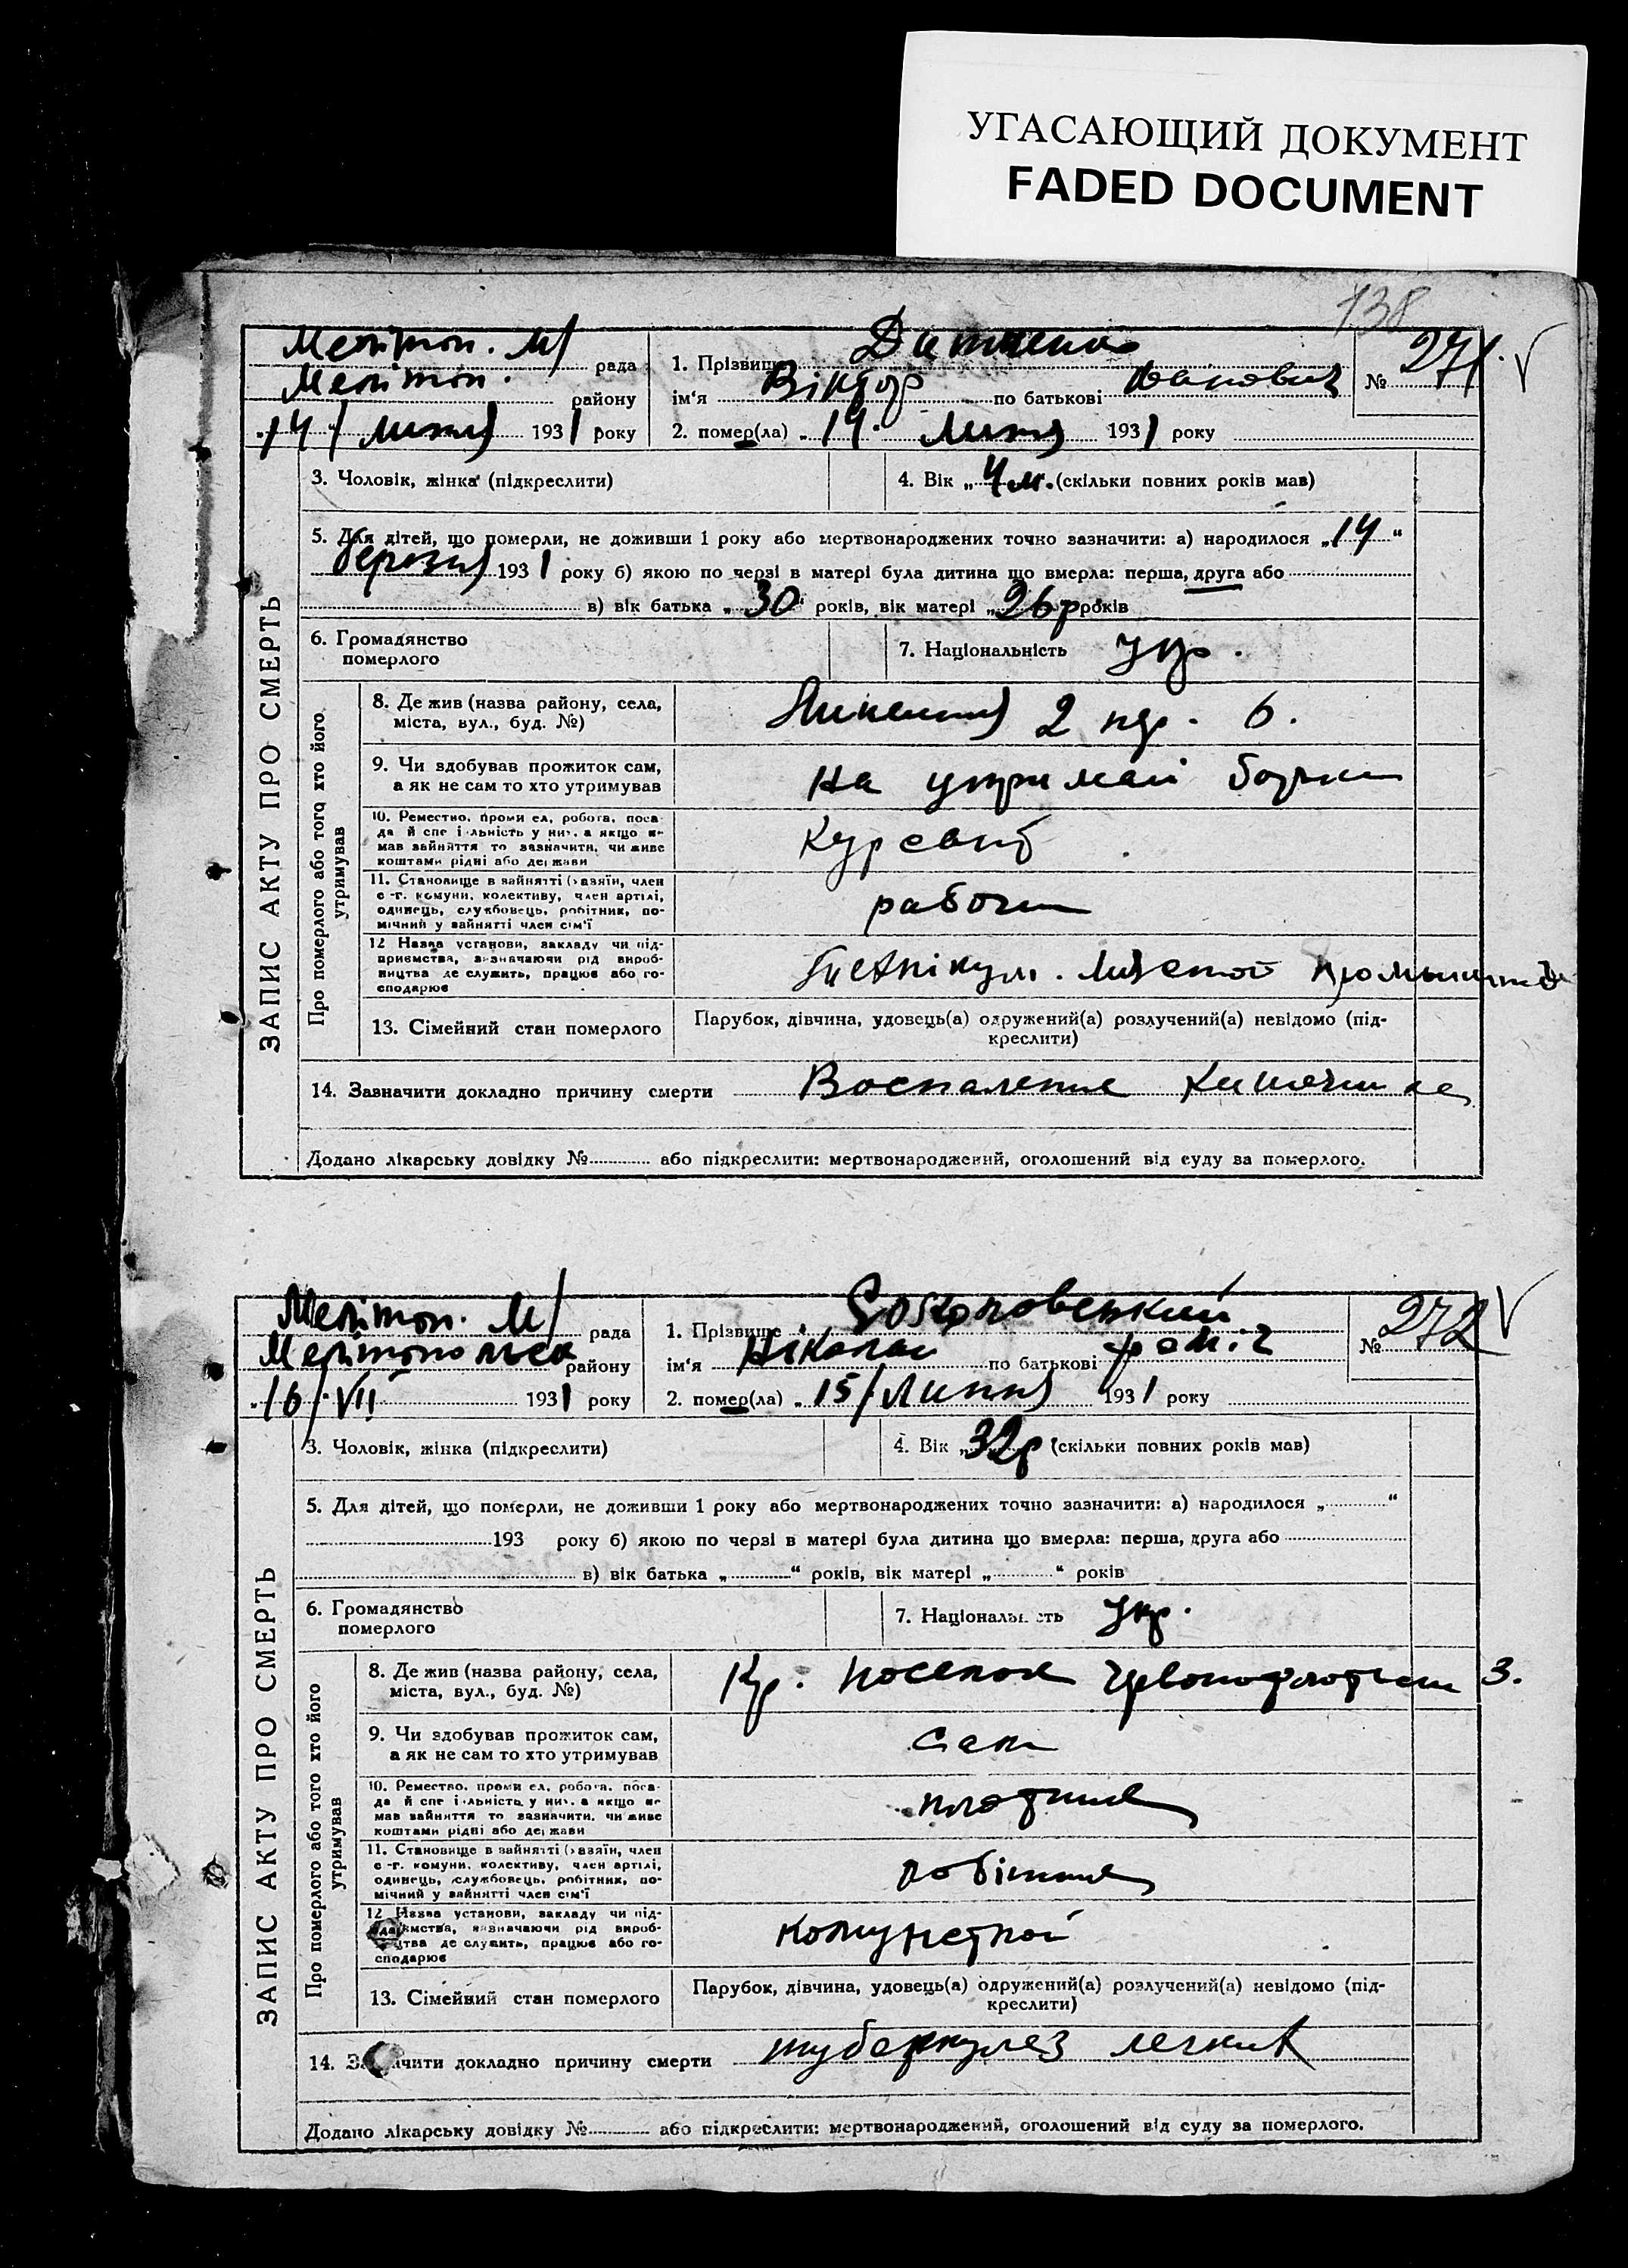 УГАСАЮЩИЙ ДОКУМЕНТ
FADED DOCUMENT
138
Мелітоп. М/ рада
Мелітоп. району
„14/ липня 1931 року
1. Прізвище
ім‘я Віктор по батькові Іванович
№ 271.
2. помер(ла) „14. липня 1931 року
ЗАПИС АКТУ ПРО СМЕРТЬ
3. Чоловік, жінка (підкреслити)
4. Вік „4 м. (скільки повних років мав)
5. Для дітей, що померли, не доживши 1 року або мертвонароджених точно зазначити: а) народилося „14“
березня 1931 року б) якою по черзі в матері була дитина що вмерла: перша, друга або
в) вік батька „30“ років, вік матері „26 р років
6. Громадянство
померлого
7. Національність укр.
Про померлого або того хто його
утримував
8. Де жив (назва району, села,
міста, вул., буд. №)
2 пер. 6.
9. Чи здобував прожиток сам,
а як не сам то хто утримував
На утриман батька
10. Ремество, промисел, робота, поса-
да й спеціяльність у них, а якщо не
мав зайняття то зазначити, чи живе
коштами рідні або держави
Курсант
11. Становище в зайнятті (хазяїн, член
с.-г. комуни, колективу, член артілі,
одинець, службовець, робітник, по-
мічний у зайнятті член сім‘ї
рабочи
12 Назва установи, закладу чи під-
приємства, визначаючи рід вироб-
ництва де служить, працює або го-
сподарює
Технікум.
13. Сімейний стан померлого
Парубок, дівчина, удовець(а) одружений(а) розлучений(а) невідомо (під-
креслити)
14. Зазначити докладно причину смерти Воспаление кишечника
Додано лікарську довідку № або підкреслити: мертвонароджений, оголошений від суду за померлого.
Мелітоп. М/ рада
Мелітопольск району
„16/VII 1931 року
1. Прізвище
ім‘я Ніколай по батькові
№ 272
2. помер(ла) „15/ Липня 1931 року
ЗАПИС АКТУ ПРО СМЕРТЬ
3. Чоловік, жінка (підкреслити)
4. Вік „32 р (скільки повних років мав)
5. Для дітей, що померли, не доживши 1 року або мертвонароджених точно зазначити: а) народилося „ “
193 року б) якою по черзі в матері була дитина що вмерла: перша, друга або
в) вік батька „ “ років, вік матері „ “ років
6. Громадянство
померлого
7. Національність укр.
Про померлого або того хто його
утримував
8. Де жив (назва району, села,
міста, вул., буд. №)
Кр. поселок 3.
9. Чи здобував прожиток сам,
а як не сам то хто утримував
сам
10. Ремество, промисел, робота, поса-
да й спеціяльність у них, а якщо не
мав зайняття то зазначити, чи живе
коштами рідні або держави
плотник
11. Становище в зайнятті (хазяїн, член
с.-г. комуни, колективу, член артілі,
одинець, службовець, робітник, по-
мічний у зайнятті член сім‘ї
робітник
12 Назва установи, закладу чи під-
приємства, визначаючи рід вироб-
ництва де служить, працює або го-
сподарює
13. Сімейний стан померлого
Парубок, дівчина, удовець(а) одружений(а) розлучений(а) невідомо (під-
креслити)
14. Зазначити докладно причину смерти туберкулез легких
Додано лікарську довідку № або підкреслити: мертвонароджений, оголошений від суду за померлого.